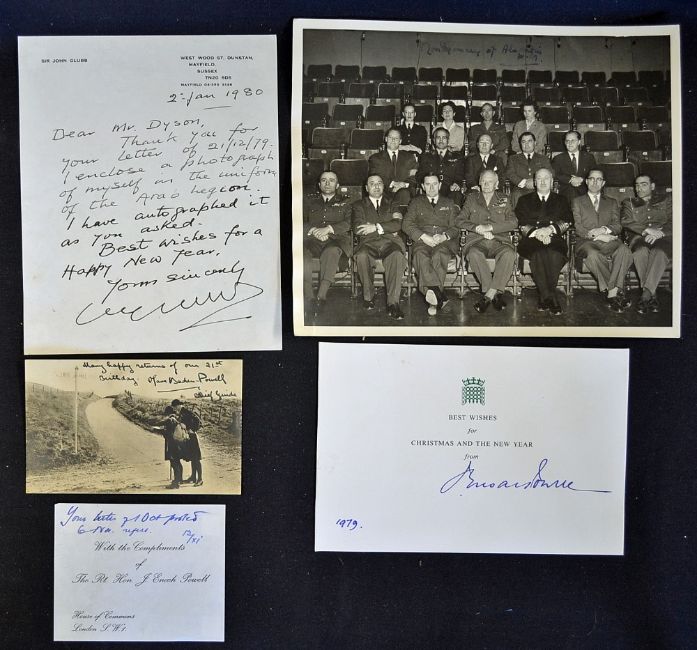 SIR JOHN GLUBB
WEST WOOD ST. DUNSTAN,
MAYFIELD,
SUSSEX
TN20 6DS
MAYFIELD
2 Jan 1980
Dear Mr. Dyson,
Thank you for
your letter of 21/12/79.
I enclose a photograph
of myself in the uniform
of the Arab legion.
I have autographed it
as you asked.
Best wishes for a
Happy New Year.
Yours sincerely
Montgomery of Alamein
Many happy returns of our 21st
Birthday Olave Baden-Powell
Chief Guide
BEST WISHES
for
CHRISTMAS AND THE NEW YEAR
from
1979.
Your letter of 1 Oct posted
6 Nov. refers.
12/xi
With the Compliments
of
The Rt. Hon. J. Enoch Powell
House of Commons
London S.W.1